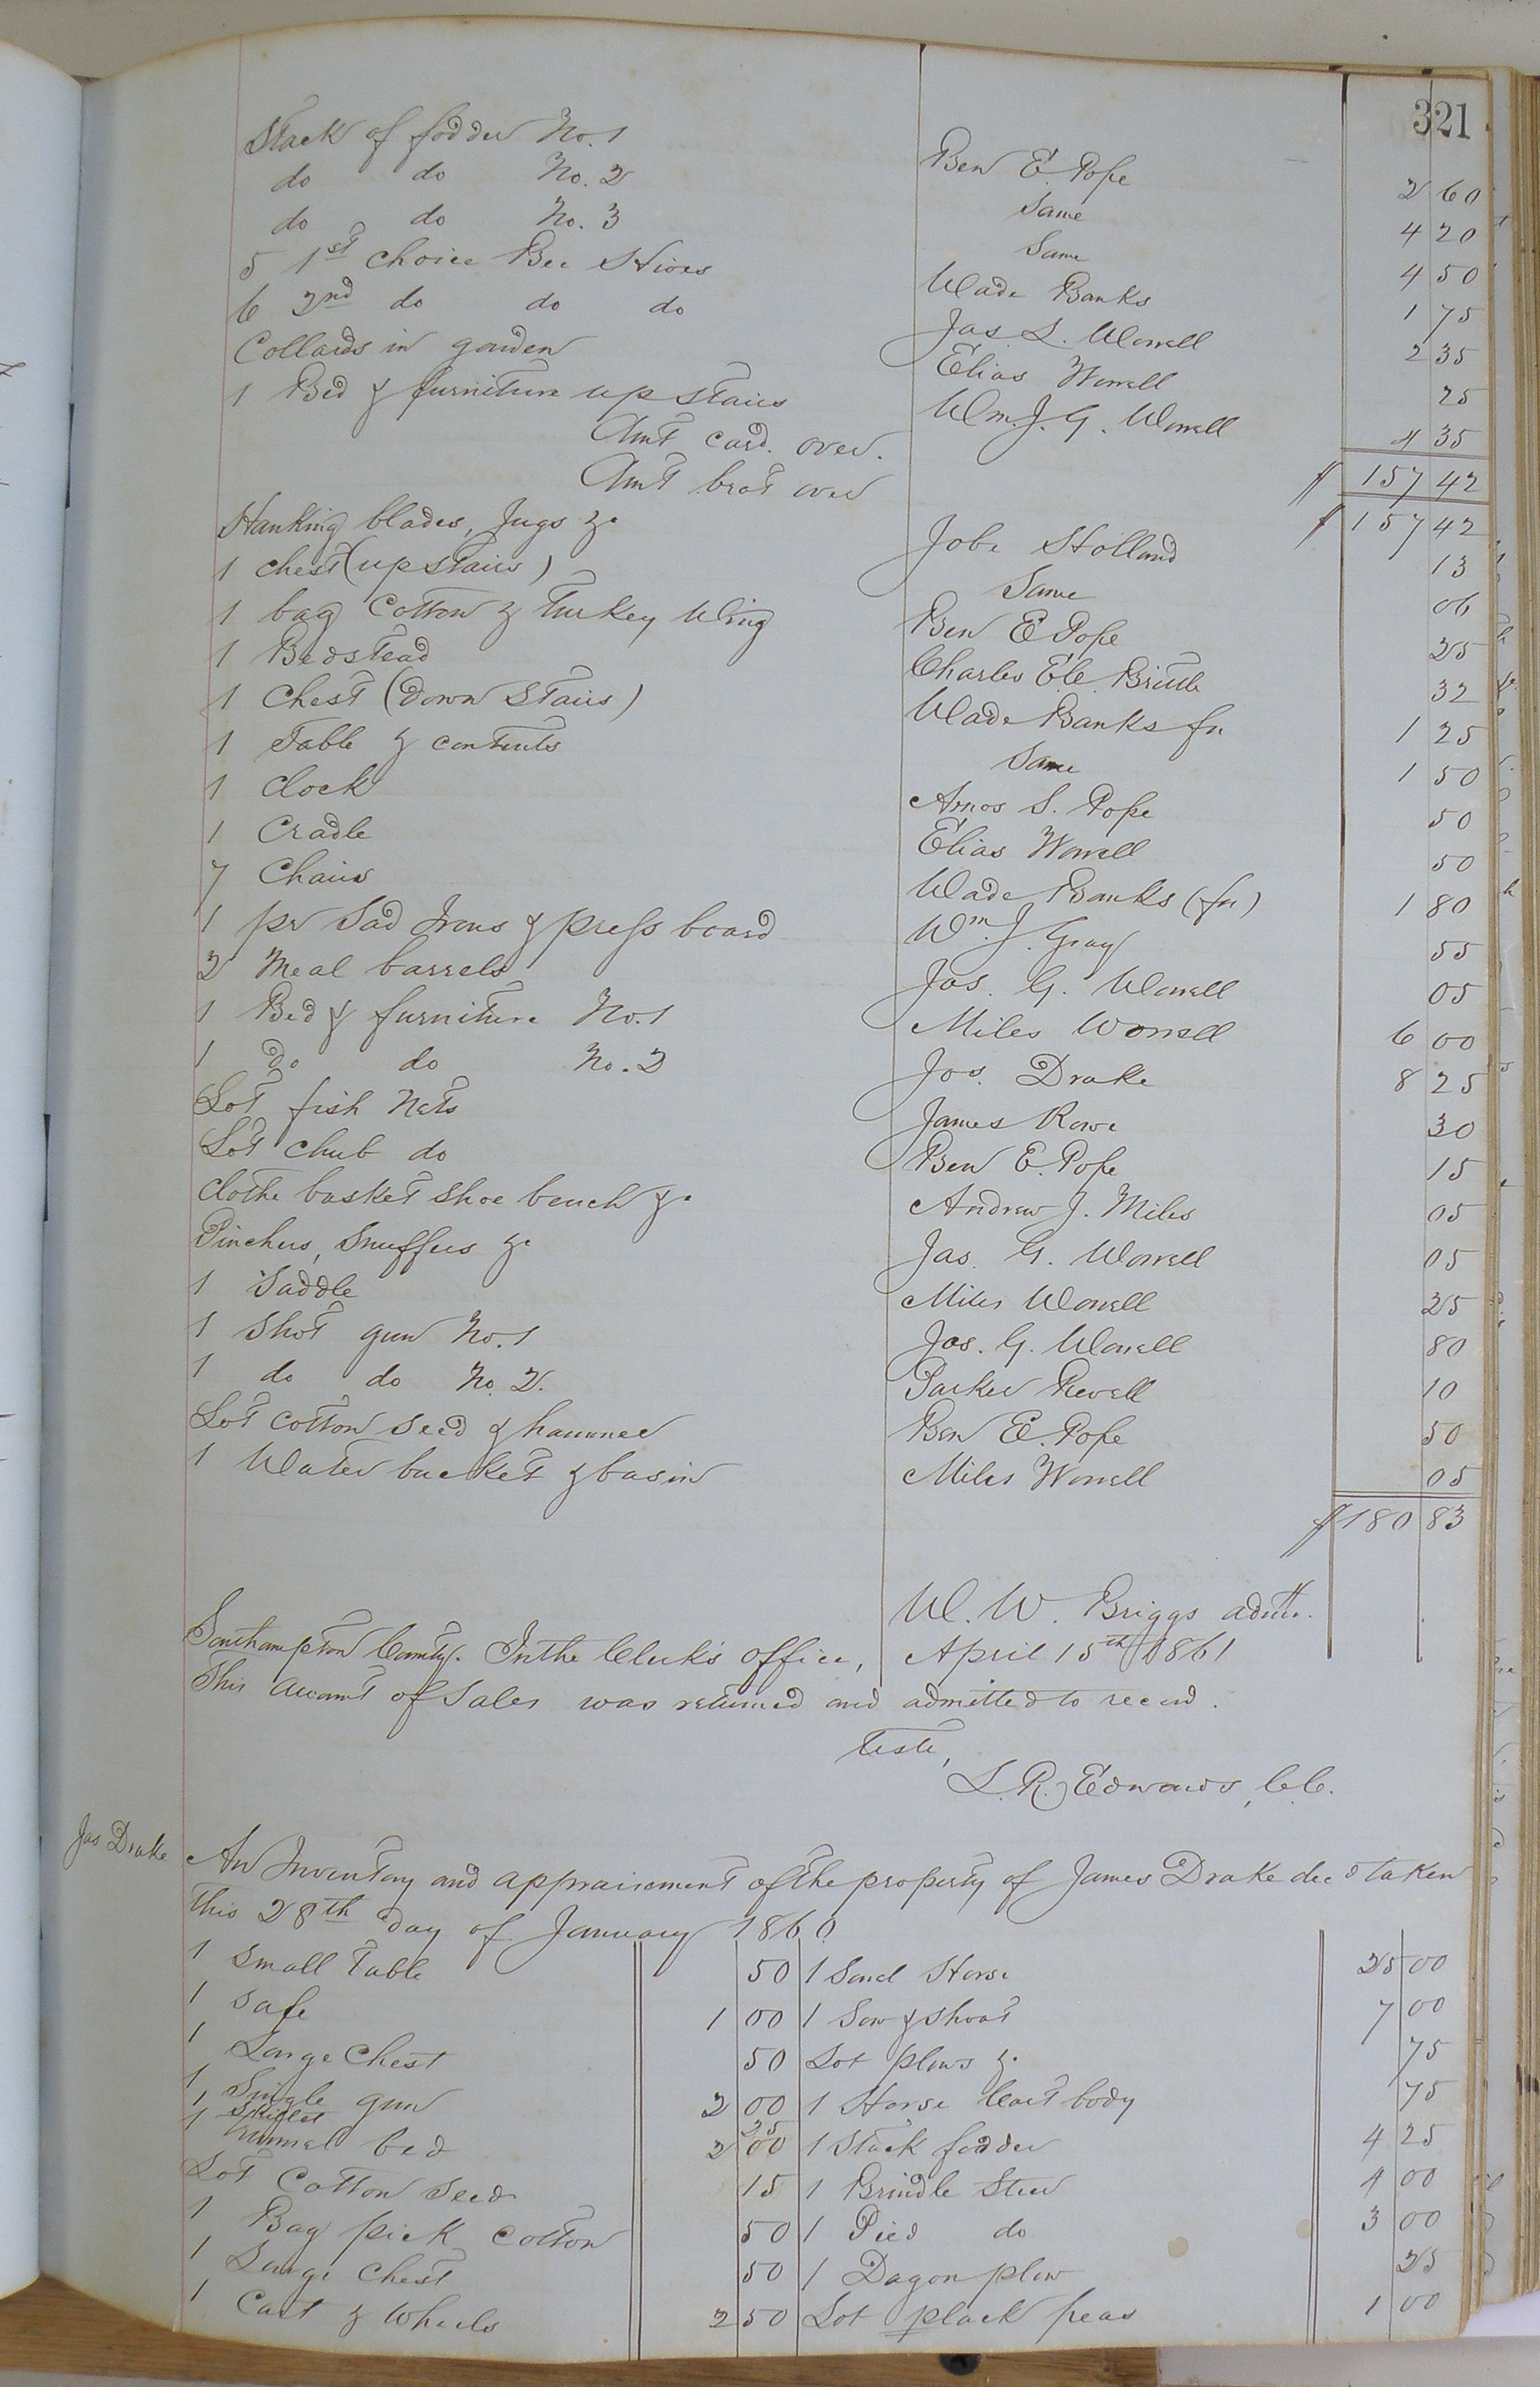 321
Stack of fodder No. 1 Ben E. Pope 2 60
do do No. 2 Same 4 20
do do No. 3 Same 4 50
5 1st choice Bee Hives Wade Banks 1 75
6 2nd do do do Jas. L. Worrell 2 35
Collards in garden Elias Worrell 25
1 Bed & furniture up stairs Wm. J. G. Worrell 4 35
Amt card. over. $ 157 42
Amt brot over $ 157 42
Hanking blades, Jugs &c Jobe Holland 13
1 chest (up stairs) Same 06
1 bag Cotton & Turkey Wing Ben E Pope 25
1 Bedstead Charles E. C. Brittle 32
1 Chest (down Stairs) Wade Banks fn 1 25
1 Table & contents Same 1 50
1 Clock Amos S. Pope 50
1 Cradle Elias Worrell 50
7 Chairs Wade Banks (fn) 1 80
1 pr Sad Irons & press board Wm. J. Gray 55
2 Meal barrels Jas. G. Worrell 05
1 Bed & furniture No. 1 Miles Worrell 6 00
1 do do No. 2 Jos. Drake 8 25
Lot fish Nets James Rowe 30
Lot Chub do Ben E. Pope 15
Clothe basket Shoe bench &c Andrew J. Miles 05
Pinchers, Snuffers &c Jas. G. Worrell 05
1 Saddle Miles Worrell 25
1 Shot gun No. 1 Jas. G. Worrell 80
1 do do No. 2. Parker Revell 10
Lot Cotton Seed & hammer Ben E. Pope 50
1 Water bucket & basin Miles Worrell 05
$ 180 83
W. W. Briggs admr.
Southampton County. In the Clerk's office, April 15th 1861
This account of Sales was returned and admitted to record.
Teste,
L. R. Edwards, C.C.
Jas Drake
An Inventory and appraisement of the property of James Drake decd taken
this 28th day of January 1860
1 Small Table 50 1 Sorrel Horse 25 00
1 Safe 1 00 1 Sow & Shoat 7 00
1 Large Chest 50 Lot plows &c 75
1 Single gun 2 00 1 Horse Cart body 75
1 Skillet 25
1 bed 2 00 1 Stack fodder 4 25
Lot Cotton Seed 15 1 Brindle Steer 4 00
1 Bag pick Cotton 50 1 Pied do 3 00
1 Large Chest 50 1 Dagon plow 25
1 Cart & Wheels 2 50 Lot plack peas 1 00